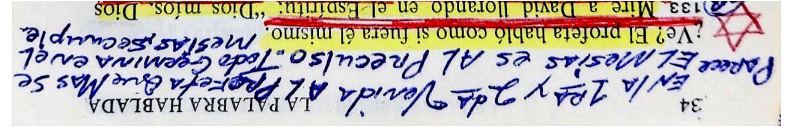 34 LA PALABRA HABLADA
EN LA 1RA y 2DA Venida AL PROFETA QUE MAS SE
PARECE EL MESIAS ES AL PRECULSO. Todo GERMINA EN EL
MESIAS, SE CUMPLE.
¿Ve? El profeta habló como si fuera él mismo.
133. Mire a David llorando en el Espíritu: “Dios míos, Dios